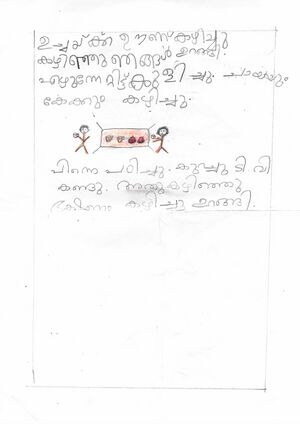 ഉച്ചയ്ക്ക് ഊണ് കഴിച്ചു
കഴിഞ്ഞു ഞങ്ങൾ ഉറങ്ങി.
എഴുന്നേറ്റിട്ട് കുളിച്ചു. ചായയും
കേക്കും കഴിച്ചു.
പിന്നെ പഠിച്ചു. കുറച്ചു ടി വി
കണ്ടു. അതുകഴിഞ്ഞു
ഭക്ഷണം കഴിച്ചു ഉറങ്ങി.